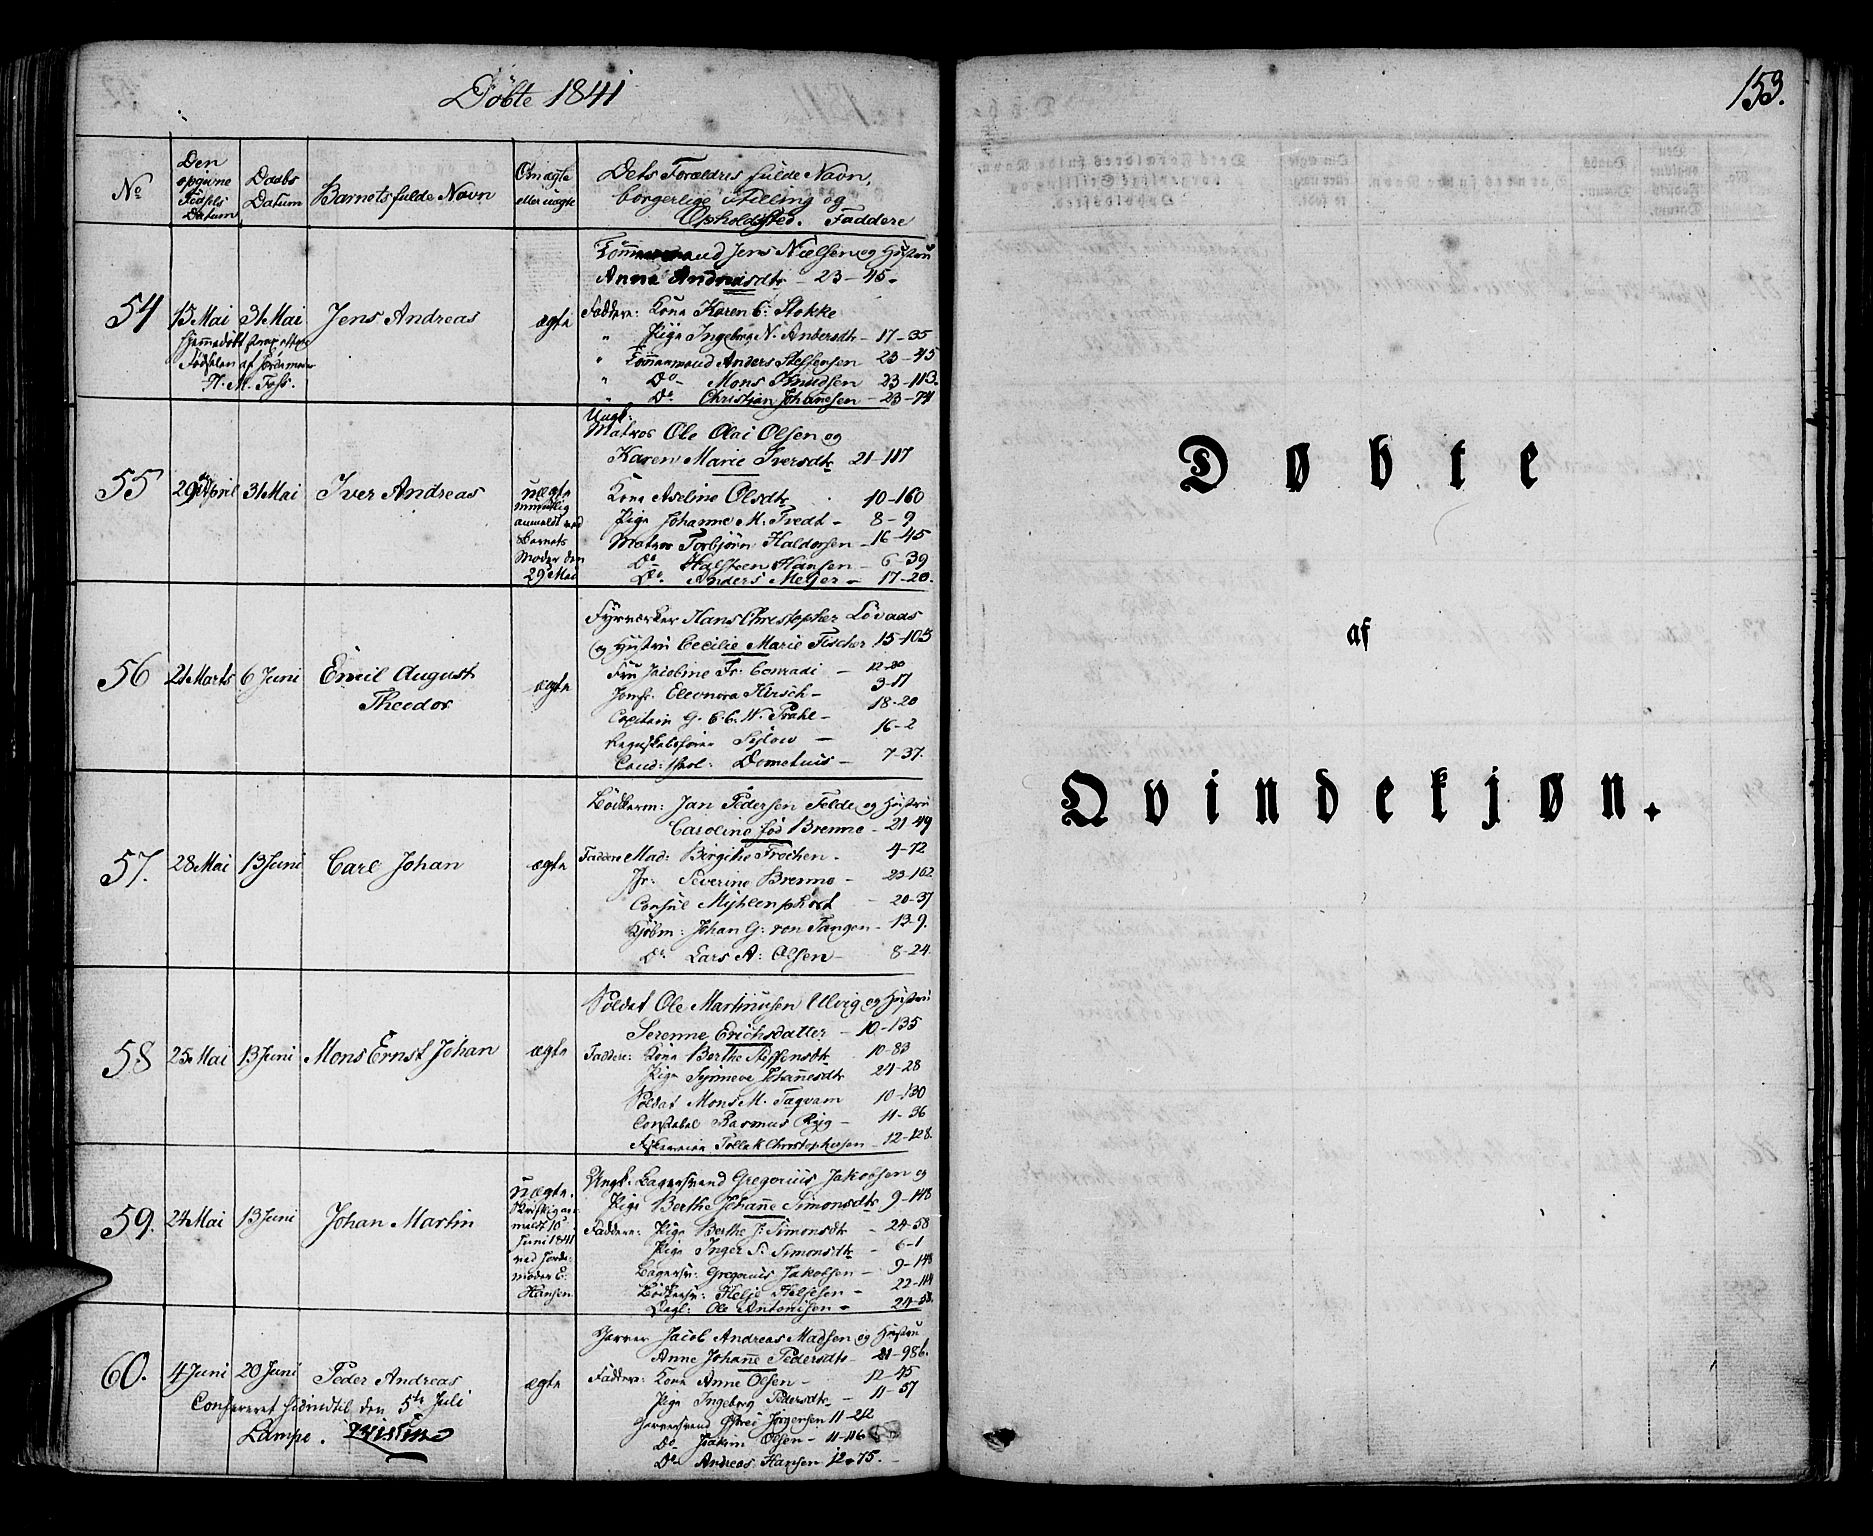 Döbte 1841
No
Den opgivne Födsels Datum
Daabs Datum
Barnets fulde Navn
Om ægte eller uægte
Dets Forældres fulde Navn,
borgerlige Stilling og
Opholdssted. Faddere
54
13 Mai
31 Mai
Jens Andreas
Hjemmedöbt strax efter
Födselen af Jordemoder
H. M. Foss.
ægte
Tömmermand Jens Nielsen og Hustru
Anne Andreasdtr - 23-45.
Faddere: Kona Karen C: Stokke
" Pige Ingeborg N. Andersdtr - 17-35
" Tömmermand Anders Steffensen 23-45
" Do - Mons Knudsen 23-113.
" Do Christian Johannesen - 23-74
55
29 April
31 Mai
Iver Andreas
uægte
mundtlig
anmeldt ved
Barnets
Moder den
29 Mai
Ungk:
Matros Ole Olai Olsen og
Karen Marie Iversdtr 21-117
Kona Aseline Olsdtr 10-160
Pige Johanne M. Tvedt - 8-9
Matros Torbjörn Haldorsen - 16-45
Do Halsteen Hansen - 6-39
Do. Anders Mejer - 17-20.
56
21 Marts
6 Juni
Emil August
Theodor
ægte
Fyrværker Hans Christopher Lövaas
og Hustru Cecilie Marie Fischer 15-103
Fru Jacobine Fr: Conradi - 12-20
Jomfr: Eleonora Hirsch - 3-17
Capitain G. C. C. W. Prahl - 18-20
Regnskabsförer - 16-2
Cand: - 7-37.
57.
28 Mai
13 Juni
Carl Johan
ægte
Bödkerm: Jan Pedersen Folde og Hustru
Caroline föd Brenne - 21-49
Faddere Mad: Birgithe Frochen. 4-72
Jfr: Severine Brenne - 23-162.
Consul Myhlenphort - 20-37
Kjöbm: Johan G: von Tangen - 13-9.
Do Lars A: Olsen - 8-24.
58
25 Mai
13 Juni
Mons Ernst Johan
ægte
Soldat Ole Martinusen Ulvig og Hustru
Serenne Erichsdatter - 10-135
Faddere: Kona Berthe Steffensdtr 10-83
Pige Synneve Johannesdtr 24-28
Soldat Mons M. Taqvam 10-130
Constabel Rasmus Ryg - 11-36
Tollak Christophersen - 12-128.
59.
24 Mai
13 Juni
Johan Martin
uægte.
Skriftlig an-
meldt 10
Juni 1841
ved Jorde-
moder E.
Hansen
Ungk: Bagersvend Gregorius Jakobsen og
Pige Berthe Johanne Simonsdtr 9-148
Faddere: Pige Berthe J. Simonsdtr - 24-58
Pige Inger S. Simonsdtr - 6-1
Bagersv: Gregorius Jakobsen - 9-148
Bödkersv: Helje Helgesen - 22-114
Ungk: Ole Antonisen - 24-58.
60.
4 Juni
20 Juni
Peder Andreas
ægte
Confereret hidindtil den 5te Juli
Lampe.
Garver Jacob Andreas Madsen og Hustru
Anne Johanne Pedersdtr - 21-98 b.
Faddere: Kona Anne Olsen - 12-45
Pige Ingeborg Pedersdtr - 11-57
Garversvend Jörgensen 11-212
Do Joakim Olsen - 11-116
Do. Andreas Hansen 12-75.
153.
Døbte
af
Qvindekjøn.